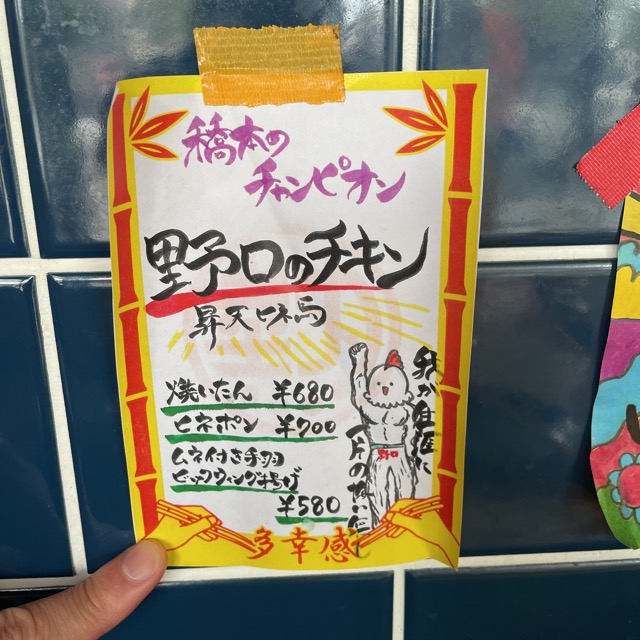 橋本の
チャンピオン
野口のチキン
昇天ヒネ鳥
焼いたん ¥680
ヒネポン ¥700
ムネ付き手羽
ビックウィング揚げ
¥580
我が生涯に
一片の悔いなし
野口
多幸感